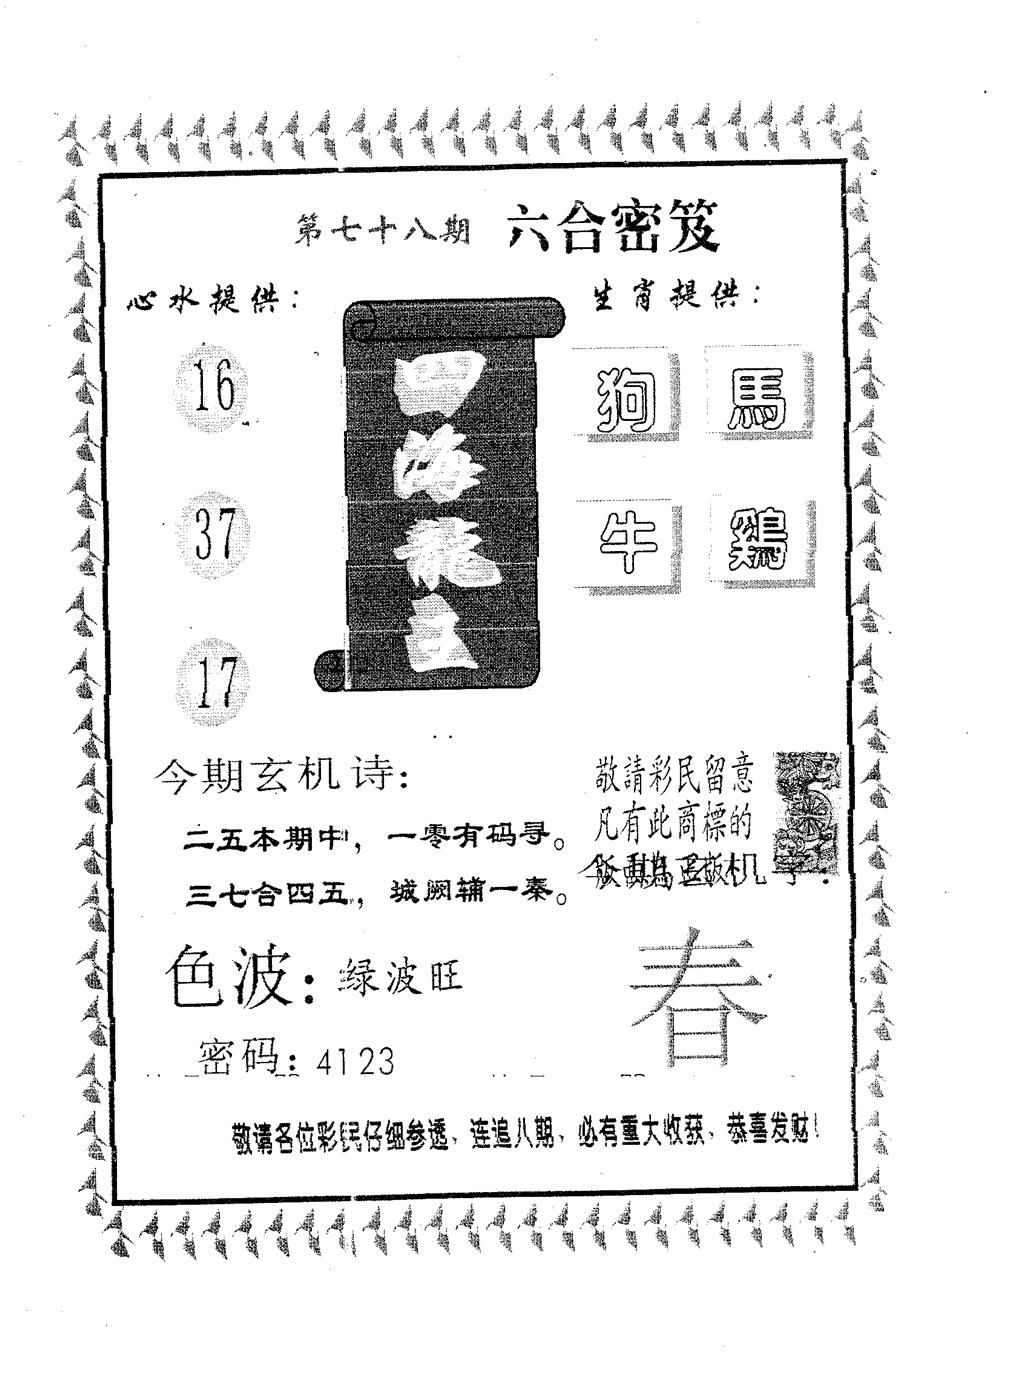 第七十八期 六合密笈
心水提供：
生肖提供：
16
37
17
四海龍王
狗 馬
牛 鷄
今期玄机诗：
二五本期中，一零有码寻。
三七合四五，城阙辅一秦。
敬請彩民留意
凡有此商標的
色波：绿波旺
密码：4123
春
敬请各位彩民仔细参透、连追八期、必有重大收获、恭喜发财！